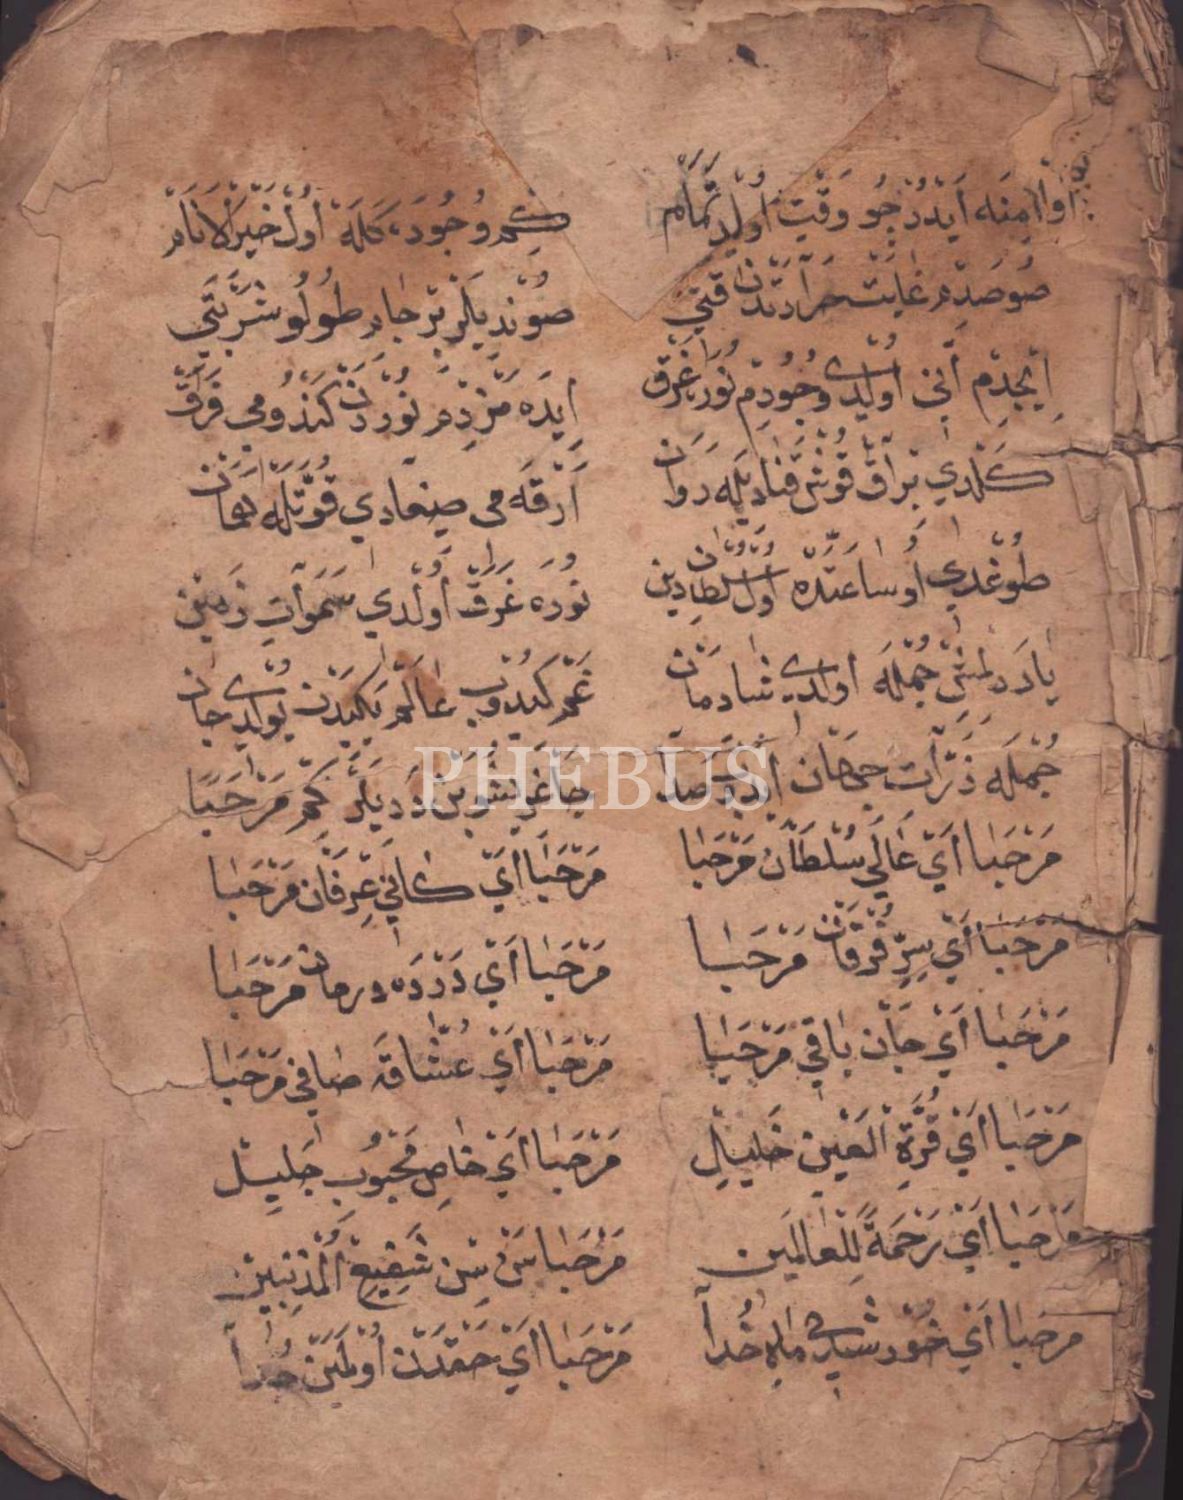 اول آمِنَه اَيْدُرْ چُو وَقْتْ اُولْدِ تَمَامْ كِمْ وُجُودَه كَلَه اُولْ خَيْرُ الْاَنَامْ
صُوصَدِمْ غَايَتْ حَرَارَتْدَنْ قَتِي صُوْنْدِيلَرْ بِرْ جَامْ طُولُو شَرْبَتِي
اِيْچِدِمْ اَنِي اُولْدِي وُجُودِمْ نُورَه غَرْق اِيدَه مَزْدِمْ نُورْدَنْ كَنْدُومِي فَرْقْ
كَلْدِي بِرْ آقْ قُوشْ قَنَادِيلَه رَوَانْ اَرْقَه مِي صِيغَادِي قُوَّتْلَه هَمَانْ
طُوغْدِي اُو سَاعَتْدَه اُولْ سُلْطَانِ دِينْ نُورَه غَرْقْ اُولْدِي سَمَوَاتِ زَمِينْ
يَارَدِلْمِشْ جُمْلَه اُولْدِي شَادْمَانْ غَمْ كِيدُوبْ عَالَمْ يَكِيدَنْ بُولْدِي جَانْ
جُمْلَه ذَرَّاتِ جِهَانْ اِيدُبْ صَدَا چَاغْرِيشُوبَنْ دِدِيلَرْ كِمْ مَرْحَبَا
مَرْحَبَا اَيْ عَالِي سُلْطَانْ مَرْحَبَا مَرْحَبَا اَيْ كَانِي عِرْفَانْ مَرْحَبَا
مَرْحَبَا اَيْ سِرِّ فُرْقَانْ مَرْحَبَا مَرْحَبَا اَيْ دَرْدَه دِرمَانْ مَرْحَبَا
مَرْحَبَا اَيْ جَانِ بَاقِي مَرْحَبَا مَرْحَبَا اَيْ عُشَّاقَه صَافِي مَرْحَبَا
مَرْحَبَا اَيْ قُرَّةِ الْعَيْنِ خَلِيلِ مَرْحَبَا اَيْ خَاصِ مَحْبُوبِ جَلِيلْ
مَرْحَبَا اَيْ رَحْمَةً لِلْعَالَمِين مَرْحَبَا سَنْ سِنْ شَفِيعُ الْمُذْنِبِينْ
مرحبا اَيْ خُورْشِيدِي مَاهِ خُدَا مَرْحَبَا اَيْ حَقْدَنْ اُولْمَيَنْ جُدَا
PHEBUS